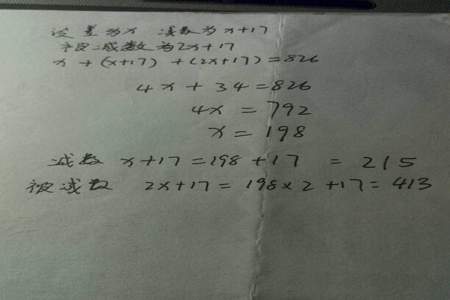 设差为x 减数为x+17
则被减数为2x+17
x+(x+17)+(2x+17)=826
4x+34=826
4x=792
x=198
减数 x+17=198+17=215
被减数 2x+17=198×2+17=413